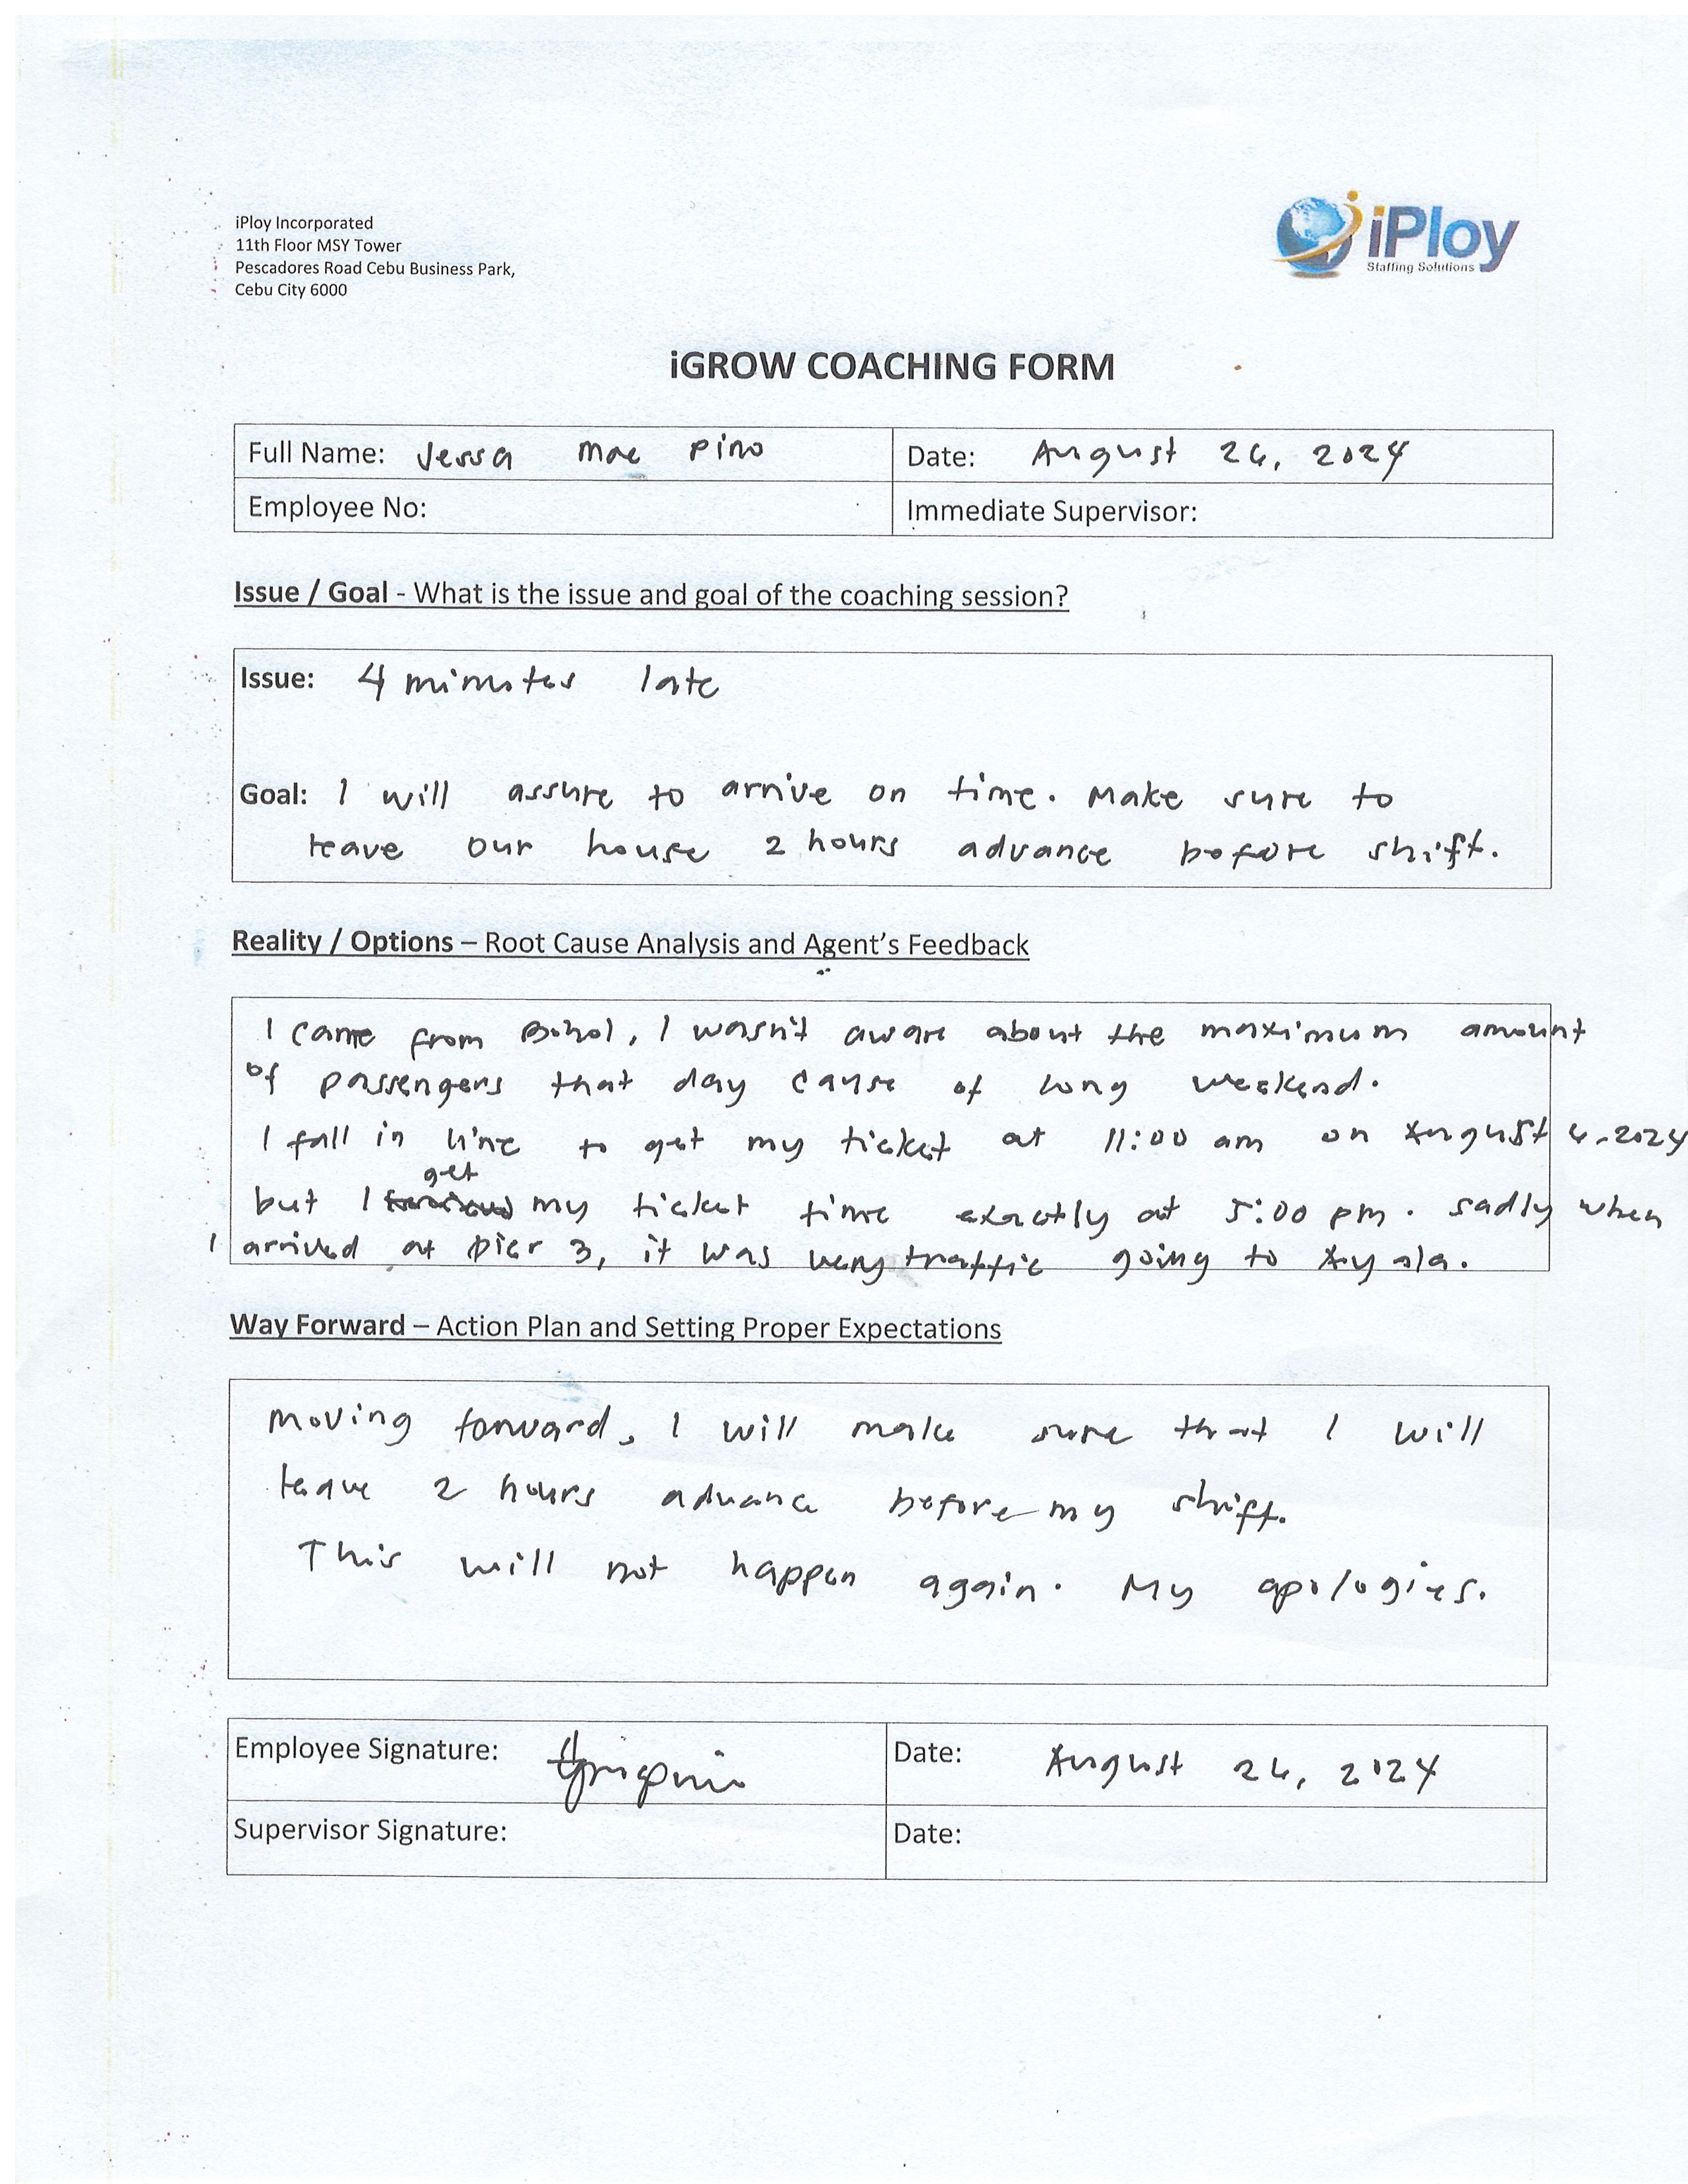 iPloy Incorporated
11th Floor MSY Tower
Pescadores Road Cebu Business Park,
Cebu City 6000
iPloy
Staffing Solutions
iGROW COACHING FORM
Full Name: Jessa Mae Pino
Date: August 26, 2024
Employee No:
Immediate Supervisor:
Issue / Goal - What is the issue and goal of the coaching session?
Issue: 4 minutes late
Goal: I will assure to arrive on time. Make sure to
leave our house 2 hours advance before shift.
Reality / Options – Root Cause Analysis and Agent's Feedback
I came from Bohol, I wasn't aware about the maximum amount
of passengers that day cause of long weekend.
I fall in line to get my ticket at 11:00 am on August 2024
get
but I my ticket time exactly at 5:00 pm. sadly when
I arrived at Pier 3, it was very traffic going to Ayala.
Way Forward – Action Plan and Setting Proper Expectations
Moving forward, I will make sure that I will
leave 2 hours advance before my shift.
This will not happen again. My apologies.
Employee Signature:
Date: August 26, 2024
Supervisor Signature:
Date: